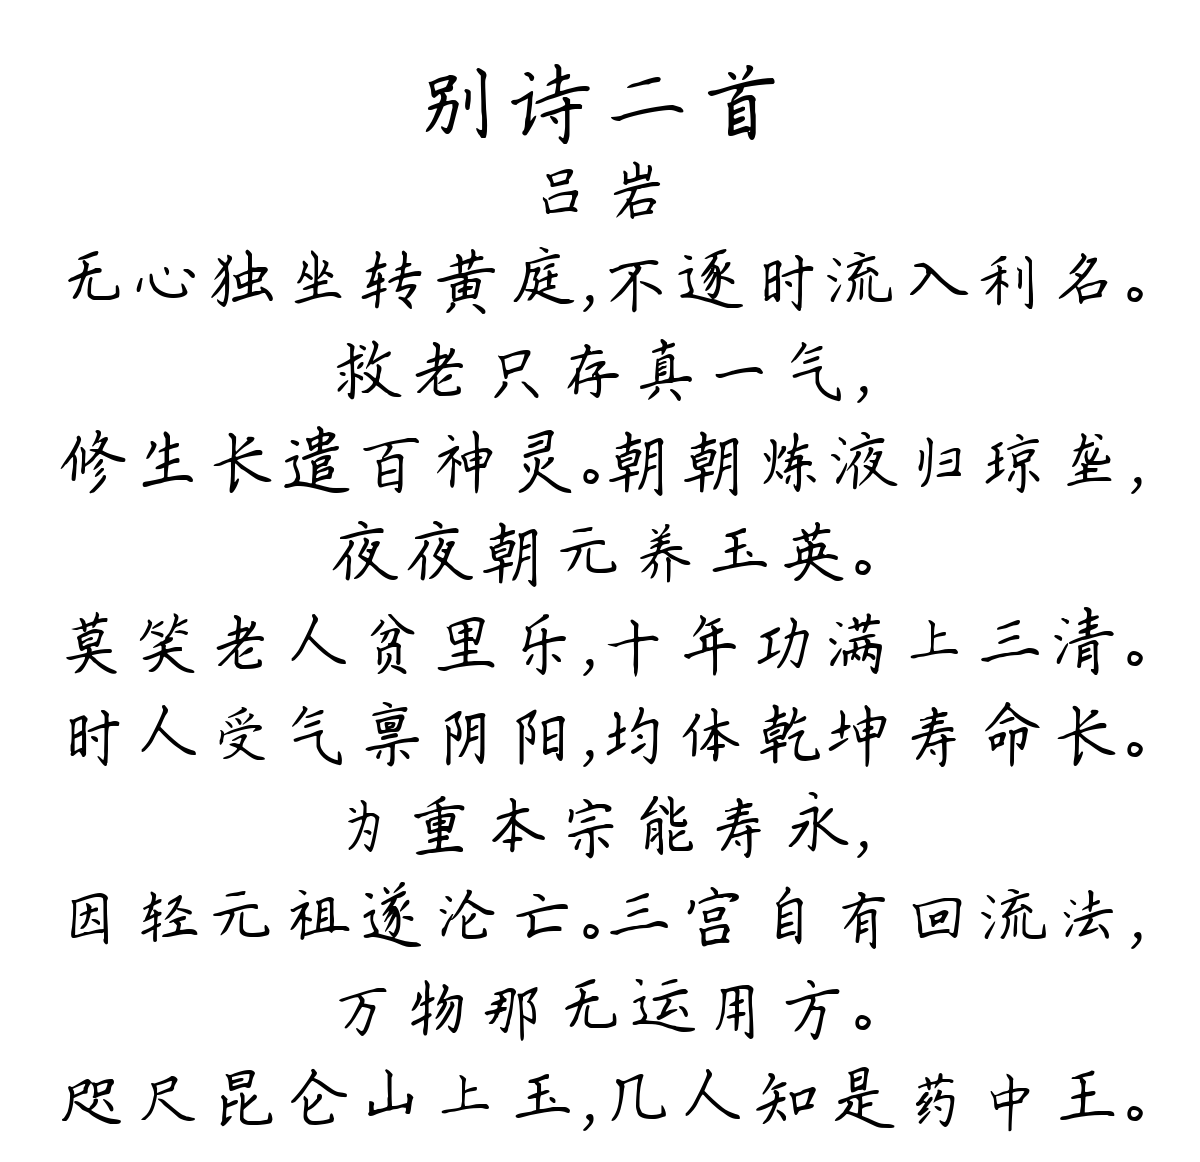 别诗二首
吕岩
无心独坐转黄庭,不逐时流入利名。
救老只存真一气,
修生长遣百神灵。朝朝炼液归琼垄,
夜夜朝元养玉英。
莫笑老人贫里乐,十年功满上三清。
时人受气禀阴阳,均体乾坤寿命长。
为重本宗能寿永,
因轻元祖遂沦亡。三宫自有回流法,
万物那无运用方。
咫尺昆仑山上玉,几人知是药中王。